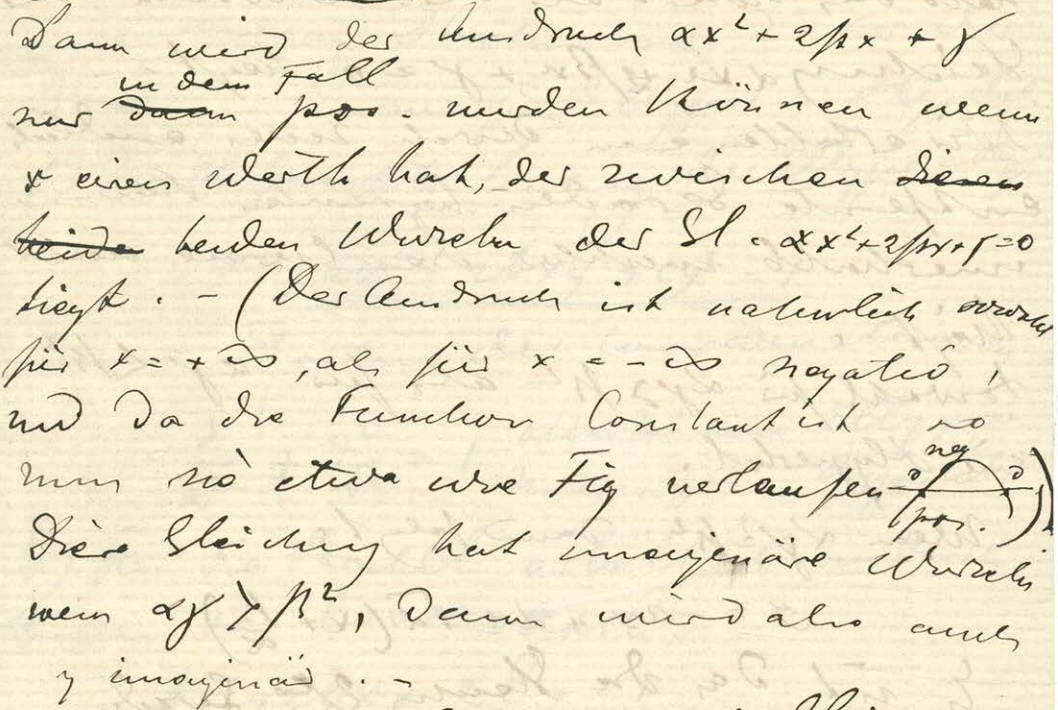 Dann wird der Ausdruck αx² + 2βx + γ
in dem Fall
nur dann pos. werden können wenn
x einen Werth hat, der zwischen diesen
beide beiden Wurzeln der Gl. αx²+2βx+γ=0
liegt. – (Der Ausdruck ist natürlich sowohl
für x = +∞, als für x = -∞ negativ,
und da die Function Constant ist so
neg
muss sie etwa wie Fig verlaufen 0 0 )
pos.
Diese Gleichung hat imaginäre Wurzeln
wenn αγ > β², Dann wird also auch
y imaginär. –